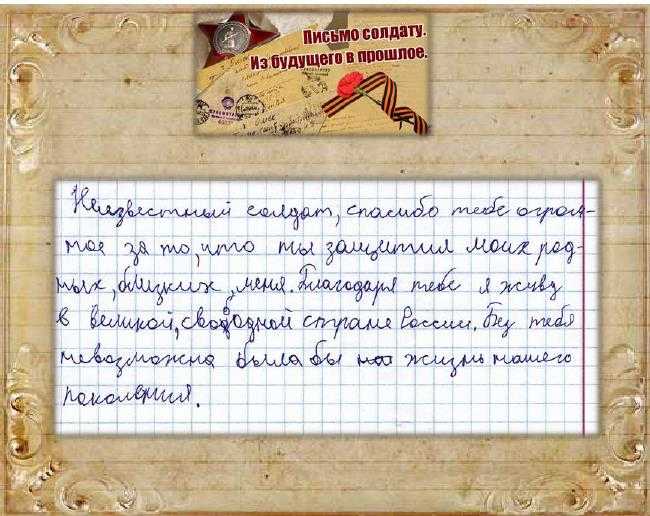 Письмо солдату.
Из будущего в прошлое.
Неизвестный солдат, спасибо тебе огром-
ное за то, что ты защитил моих род-
ных, близких, меня. Благодаря тебе я живу
в великой, свободной стране России. Без тебя
невозможна была бы жизнь нашего
поколения.